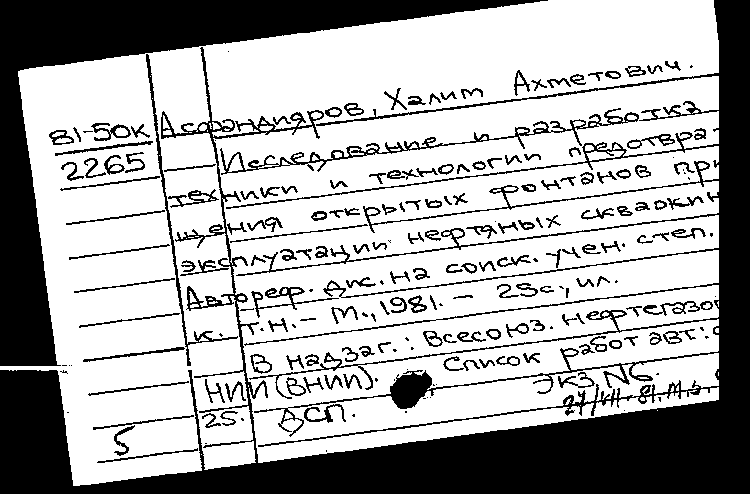 81-50К Асфандияров, Халит Ахметович.
2265 Исследование и разработка
техники и технологии предотвра-
щения открытых фонтанов при
эксплуатации нефтяных скважин
Автореф. дис. на соиск. учен. степ.
к. т.н. - М., 1981. - 25с., ил.
В надзаг.: Всесоюз. нефтегазо
НИИ (ВНИИ). Список работ авт.: с
25. ДСП. Экз. №6.
5